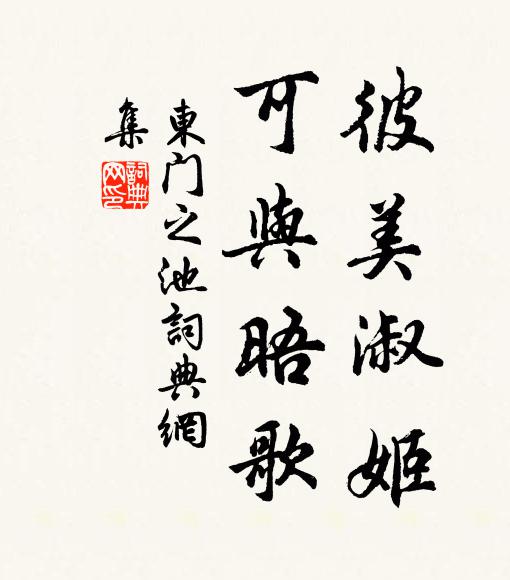 彼美淑姬
可與晤歌
東门之池詞典網
集
詞典网印